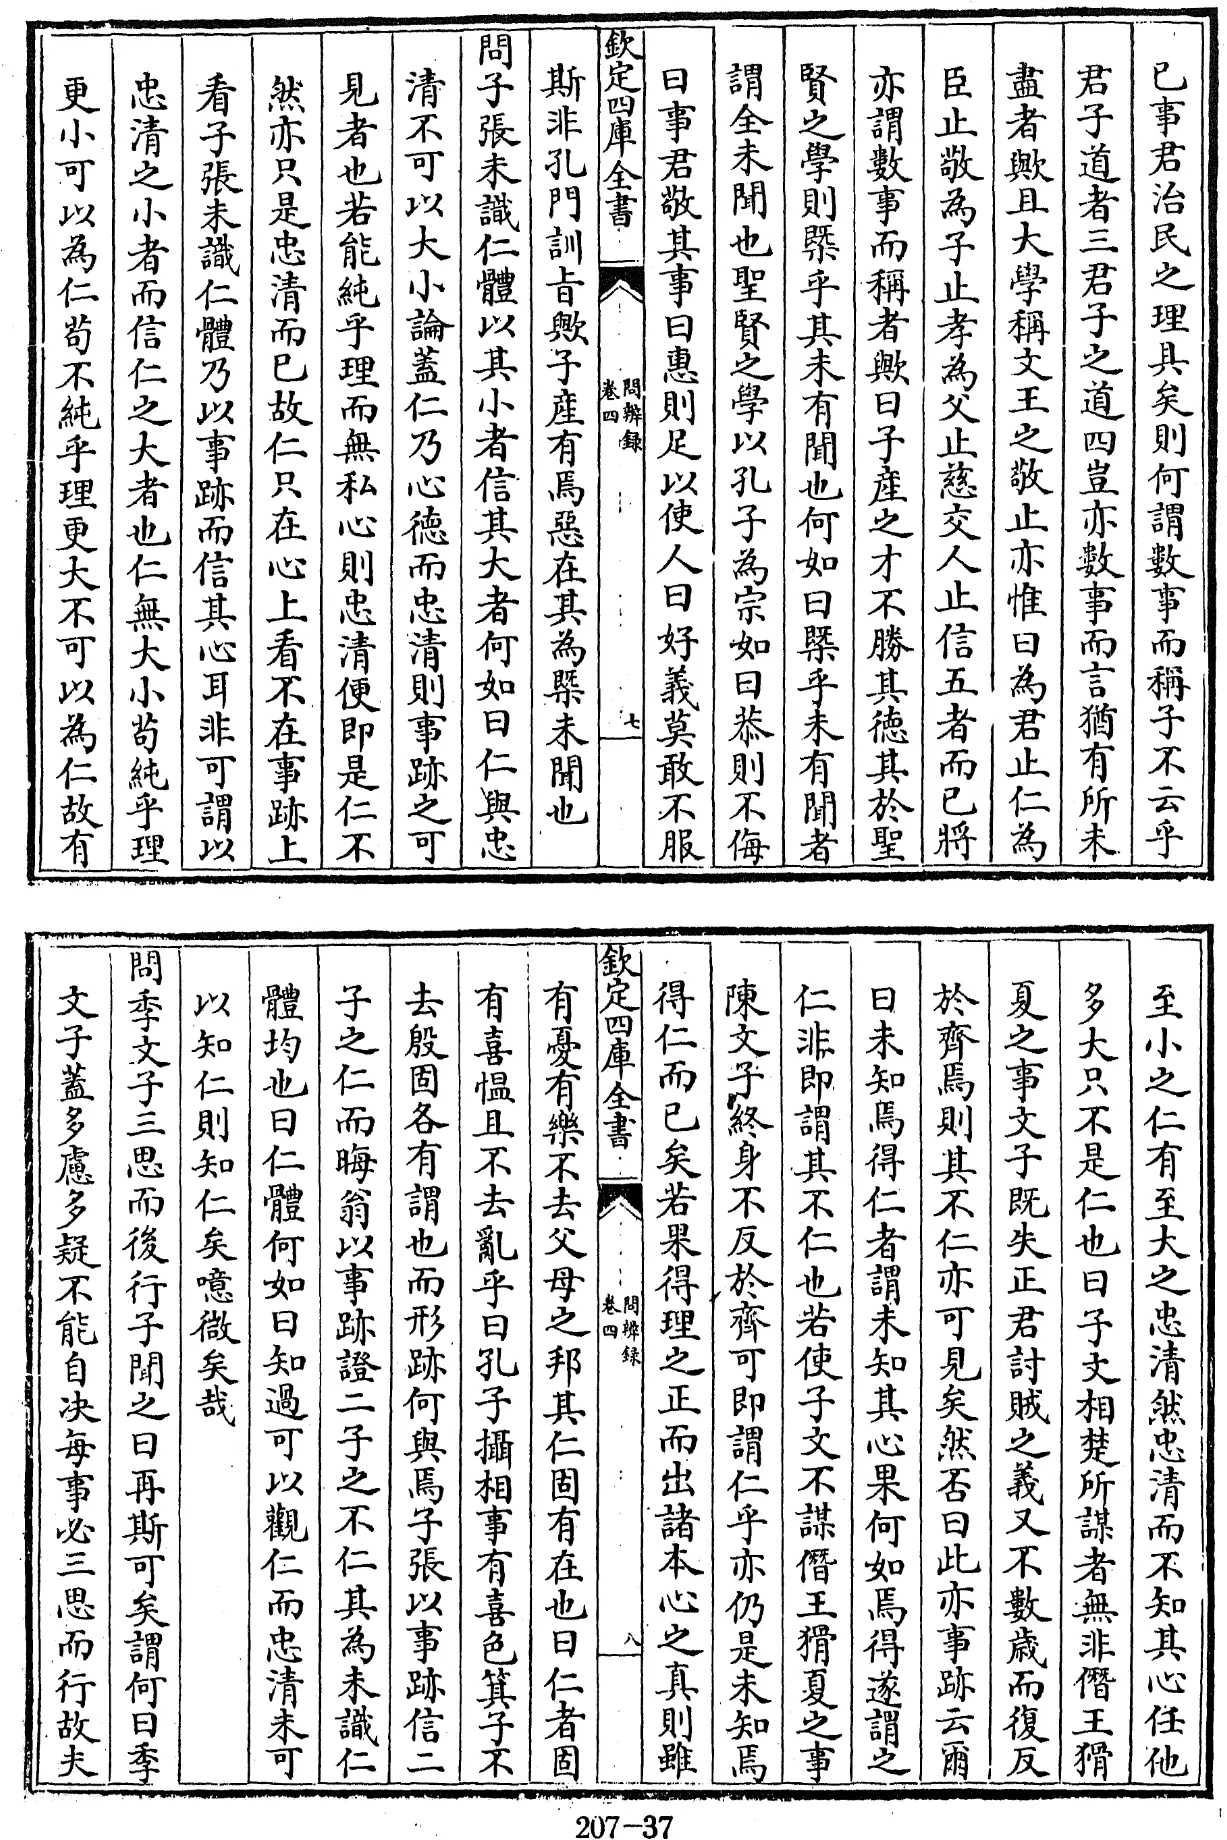 已事君治民之理具矣則何謂數事而稱子不云乎
君子道者三君子之道四豈亦數事而言猶有所未
盡者歟且大學稱文王之敬止亦惟曰為君止仁為
臣止敬為子止孝為父止慈交人止信五者而已將
亦謂數事而稱者歟曰子產之才不勝其德其於聖
賢之學則槩乎其未有聞也何如曰槩乎未有聞者
謂全未聞也聖賢之學以孔子為宗如曰恭則不侮
曰事君敬其事曰惠則足以使人曰好義莫敢不服
欽定四庫全書
問辨録
卷四
七
斯非孔門訓旨歟子產有焉惡在其為槩未聞也
問子張未識仁體以其小者信其大者何如曰仁與忠
清不可以大小論蓋仁乃心德而忠清則事跡之可
見者也若能純乎理而無私心則忠清便即是仁不
然亦只是忠清而已故仁只在心上看不在事跡上
看子張未識仁體乃以事跡而信其心耳非可謂以
忠清之小者而信仁之大者也仁無大小苟純乎理
更小可以為仁苟不純乎理更大不可以為仁故有
至小之仁有至大之忠清然忠清而不知其心任他
多大只不是仁也曰子文相楚所謀者無非僭王猾
夏之事文子既失正君討賊之義又不數歲而復反
於齊焉則其不仁亦可見矣然否曰此亦事跡云爾
曰未知焉得仁者謂未知其心果何如焉得遂謂之
仁非即謂其不仁也若使子文不謀僭王猾夏之事
陳文子終身不反於齊可即謂仁乎亦仍是未知焉
得仁而已矣若果得理之正而出諸本心之真則雖
欽定四庫全書
問辨録
卷四
八
有憂有樂不去父母之邦其仁固有在也曰仁者固
有喜慍且不去亂乎曰孔子攝相事有喜色箕子不
去殷固各有謂也而形跡何與焉子張以事跡信二
子之仁而晦翁以事跡證二子之不仁其為未識仁
體均也曰仁體何如曰知過可以觀仁而忠清未可
以知仁則知仁矣噫微矣哉
問季文子三思而後行子聞之曰再斯可矣謂何曰季
文子蓋多慮多疑不能自决每事必三思而行故夫
207-37